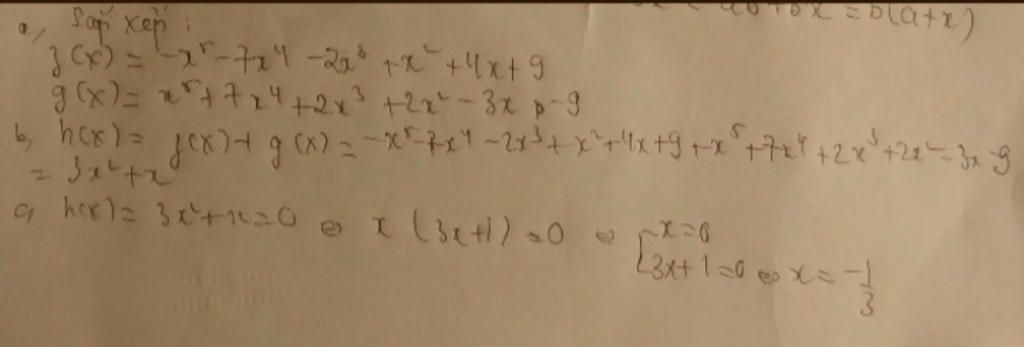 = b(a+x)
a, Sắp xếp:
f(x) = -x⁵ - 7x⁴ - 2x³ + x² + 4x + 9
g(x) = x⁵ + 7x⁴ + 2x³ + 2x² - 3x - 9
b, h(x) = f(x) + g(x) = -x⁵ - 7x⁴ - 2x³ + x² + 4x + 9 + x⁵ + 7x⁴ + 2x³ + 2x² - 3x - 9
= 3x² + x
c, h(x) = 3x² + x = 0 ⇔ x (3x+1) = 0 ⇔ [x = 0
[3x + 1 = 0 ⇔ x = -1/3